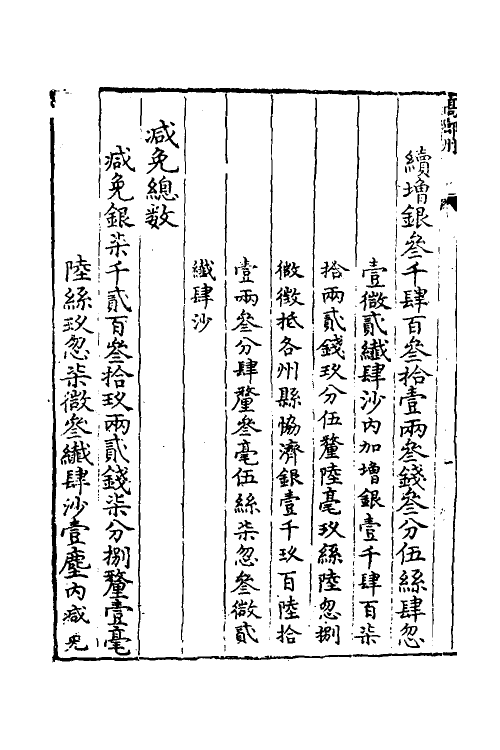 續增銀叄千肆百叄拾壹兩叄錢叄分伍絲肆忽
壹微貳纎肆沙內加增銀壹千肆百柒
拾兩貳錢玖分伍釐陸毫玖絲陸忽捌
微徴抵各州縣協濟銀壹千玖百陸拾
壹兩叄分肆釐叄毫伍絲柒忽叄微貳
纎肆沙
減免總数
減免銀柒千貳百叄拾玖兩貳錢柒分捌釐壹毫
陸絲玖忽柒微叄纎肆沙壹塵內減免